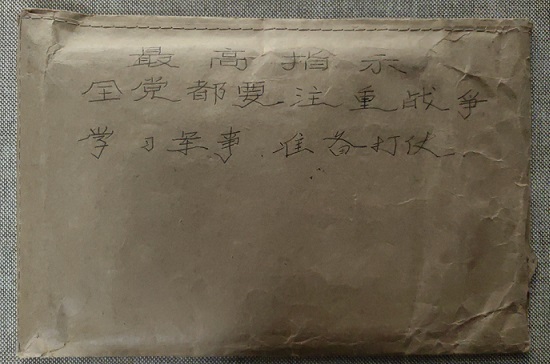 最高指示
全党都要注重战争
学习军事、准备打仗